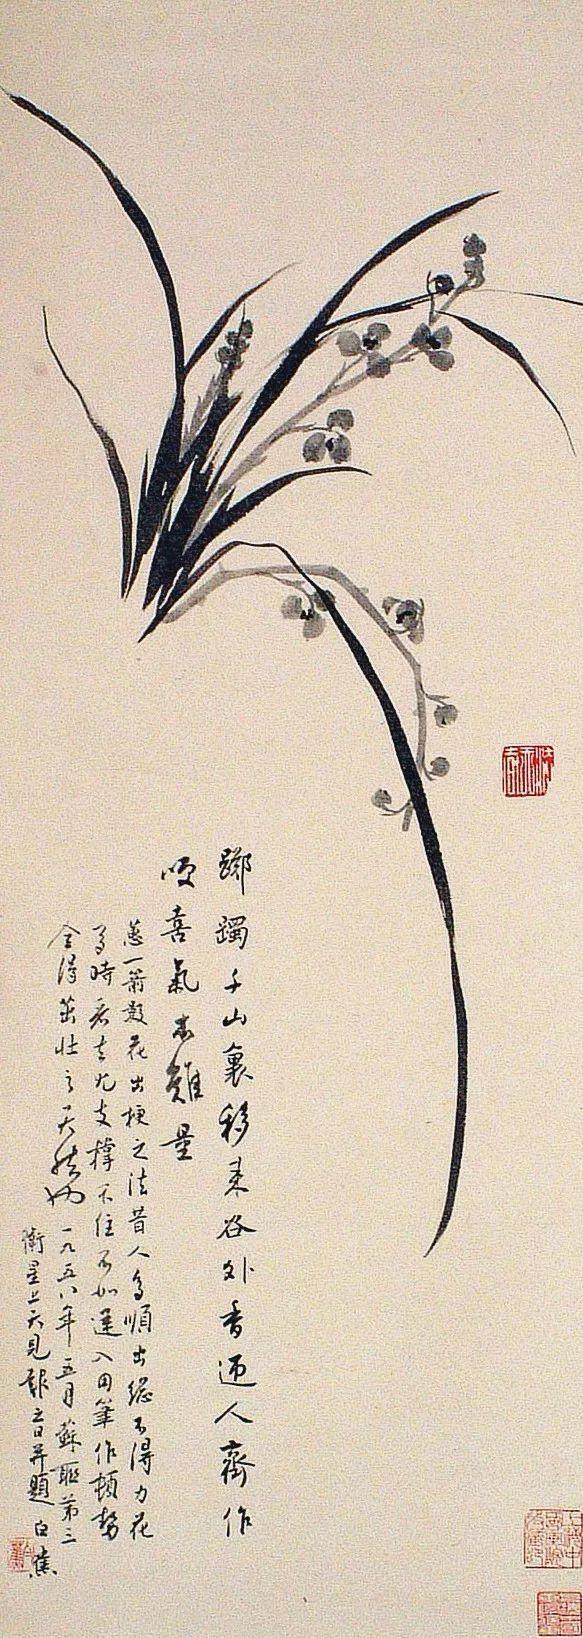 踯躅千山裏移来谷外香迎人齊作
咲喜氣未難量
蕙一箭數花出梗之法昔人多順出縂不得力花
多時若支撑不住不如逆入用筆作頓勢
全得茁壮之天然也一九五八年五月蘇聯第三
衛星上天見報之日并題白蕉